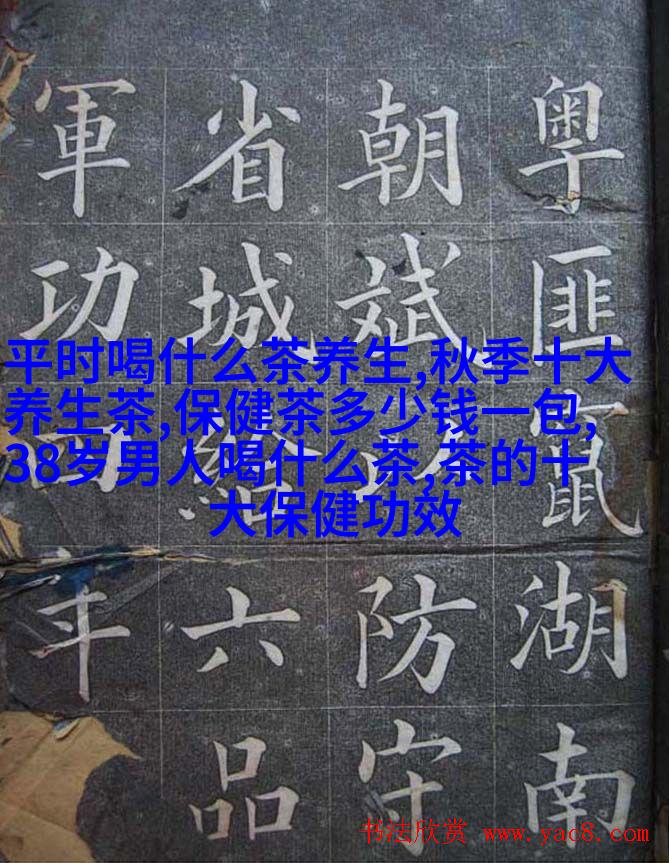 粤匪竄湖南
朝斌以防守
省城給六品
軍功
平时喝什么茶养生,秋季十大
养生茶,保健茶多少钱一包,
38岁男人喝什么茶,茶的十
大保健功效
书法欣赏 www.yac8.com